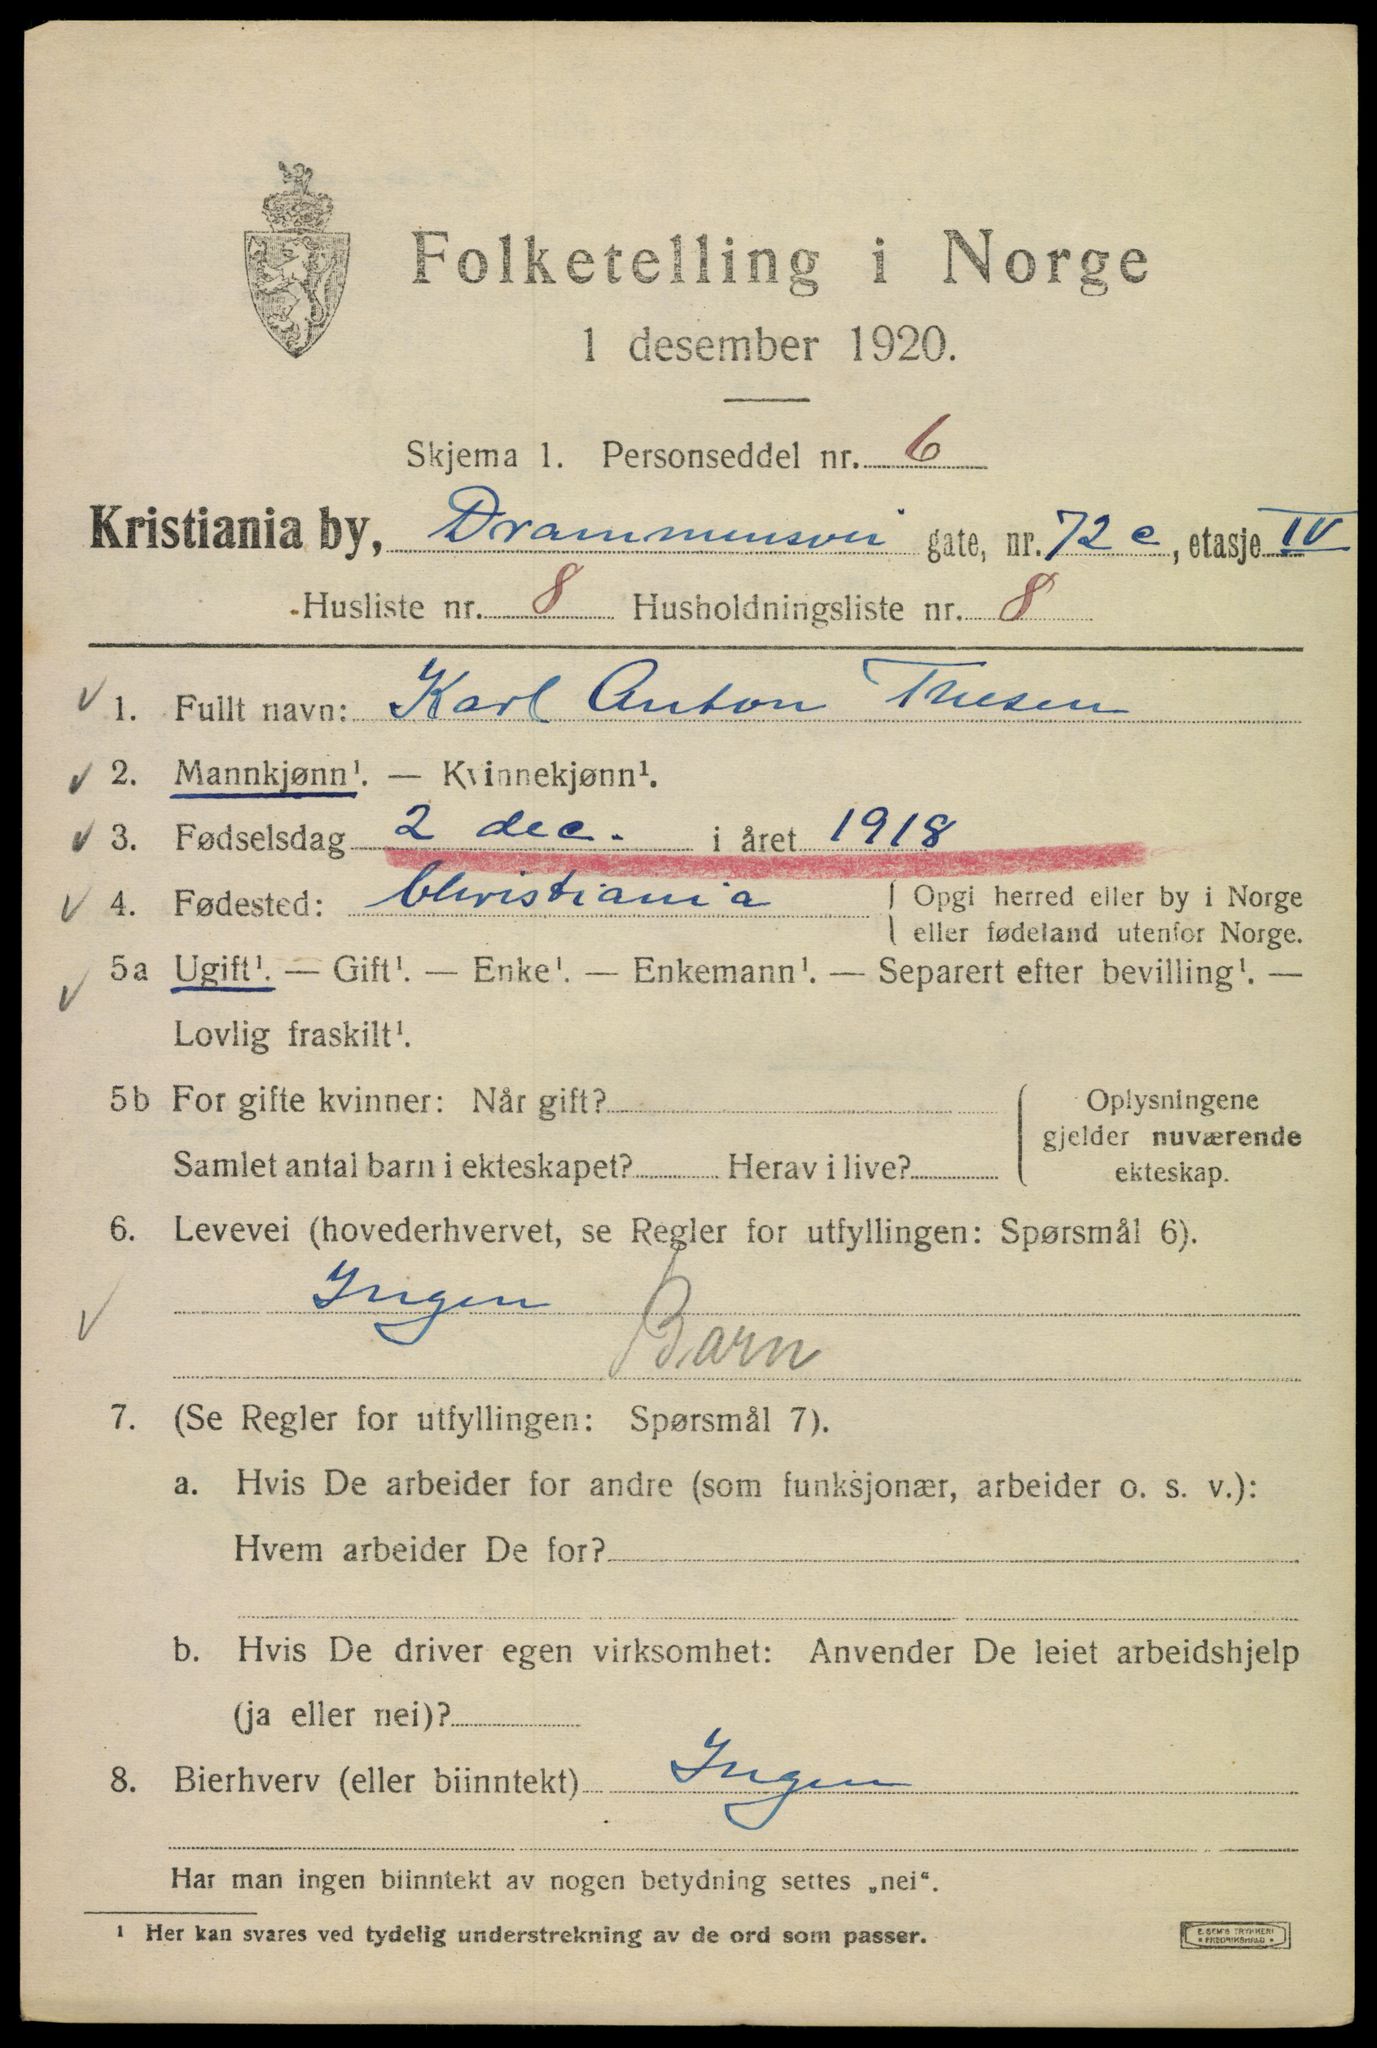 Folketelling i Norge
1 desember 1920.
Skjema 1. Personseddel nr. 6
Kristiania by, Drammensvei gate, nr. 72 c, etasje IV
Husliste nr. 8 Husholdningsliste nr. 8
1. Fullt navn: Karl Anton Thesen
2. Mannkjønn¹. — Kvinnekjønn¹.
3. Fødselsdag 2 dec. i året 1918
4. Fødested: Christiania { Opgi herred eller by i Norge
eller fødeland utenfor Norge.
5a Ugift¹. — Gift¹. — Enke¹. — Enkemann¹. — Separert efter bevilling¹. —
Lovlig fraskilt¹.
5b For gifte kvinner: Når gift? Oplysningene
gjelder nuværende
Samlet antal barn i ekteskapet? Herav i live? ekteskap.
6. Levevei (hovederhvervet, se Regler for utfyllingen: Spørsmål 6).
Ingen
Barn
7. (Se Regler for utfyllingen: Spørsmål 7).
a. Hvis De arbeider for andre (som funksjonær, arbeider o. s. v.):
Hvem arbeider De for?
b. Hvis De driver egen virksomhet: Anvender De leiet arbeidshjelp
(ja eller nei)?
8. Bierhverv (eller biinntekt) Ingen
Har man ingen biinntekt av nogen betydning settes „nei“.
¹ Her kan svares ved tydelig understrekning av de ord som passer.
E. SEM'S TRYKKERI
FREDRIKSHALD